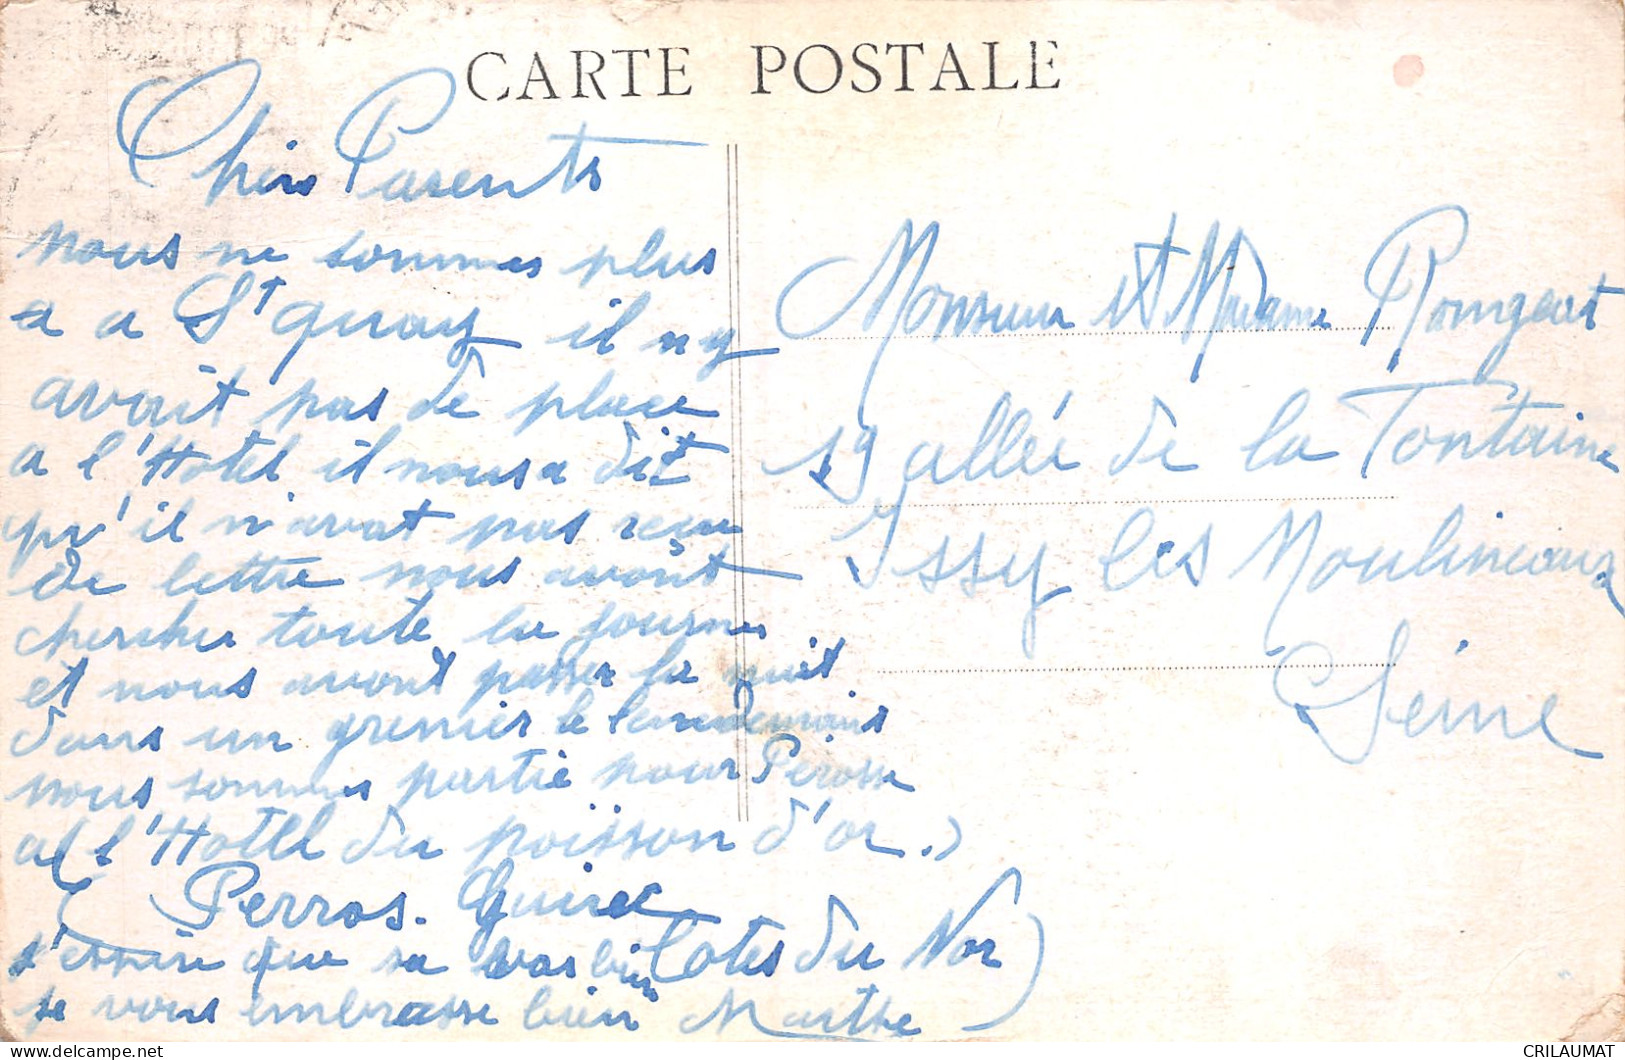 CARTE POSTALE
Chers Parents
nous ne sommes plus
a a St Quay il n y
avait pas de place
a l'Hotel il nous a dit
qu'il n'avat pas reçu
de lettre nous avont
chercher toute la journe
et nous avont passer la nuit
dans un grenier le lendemain
nous sommes partie pour Peross
a l'Hotel du poisson d'or.)
( Perros. Guirec
Cotes du Nor )
que sa vas bien
je vous embrasse bien Marthe
Monsieur et Madame Rongeat
19 allée de la Fontaine
Issy les Moulineaux
Seine
CRILAUMAT